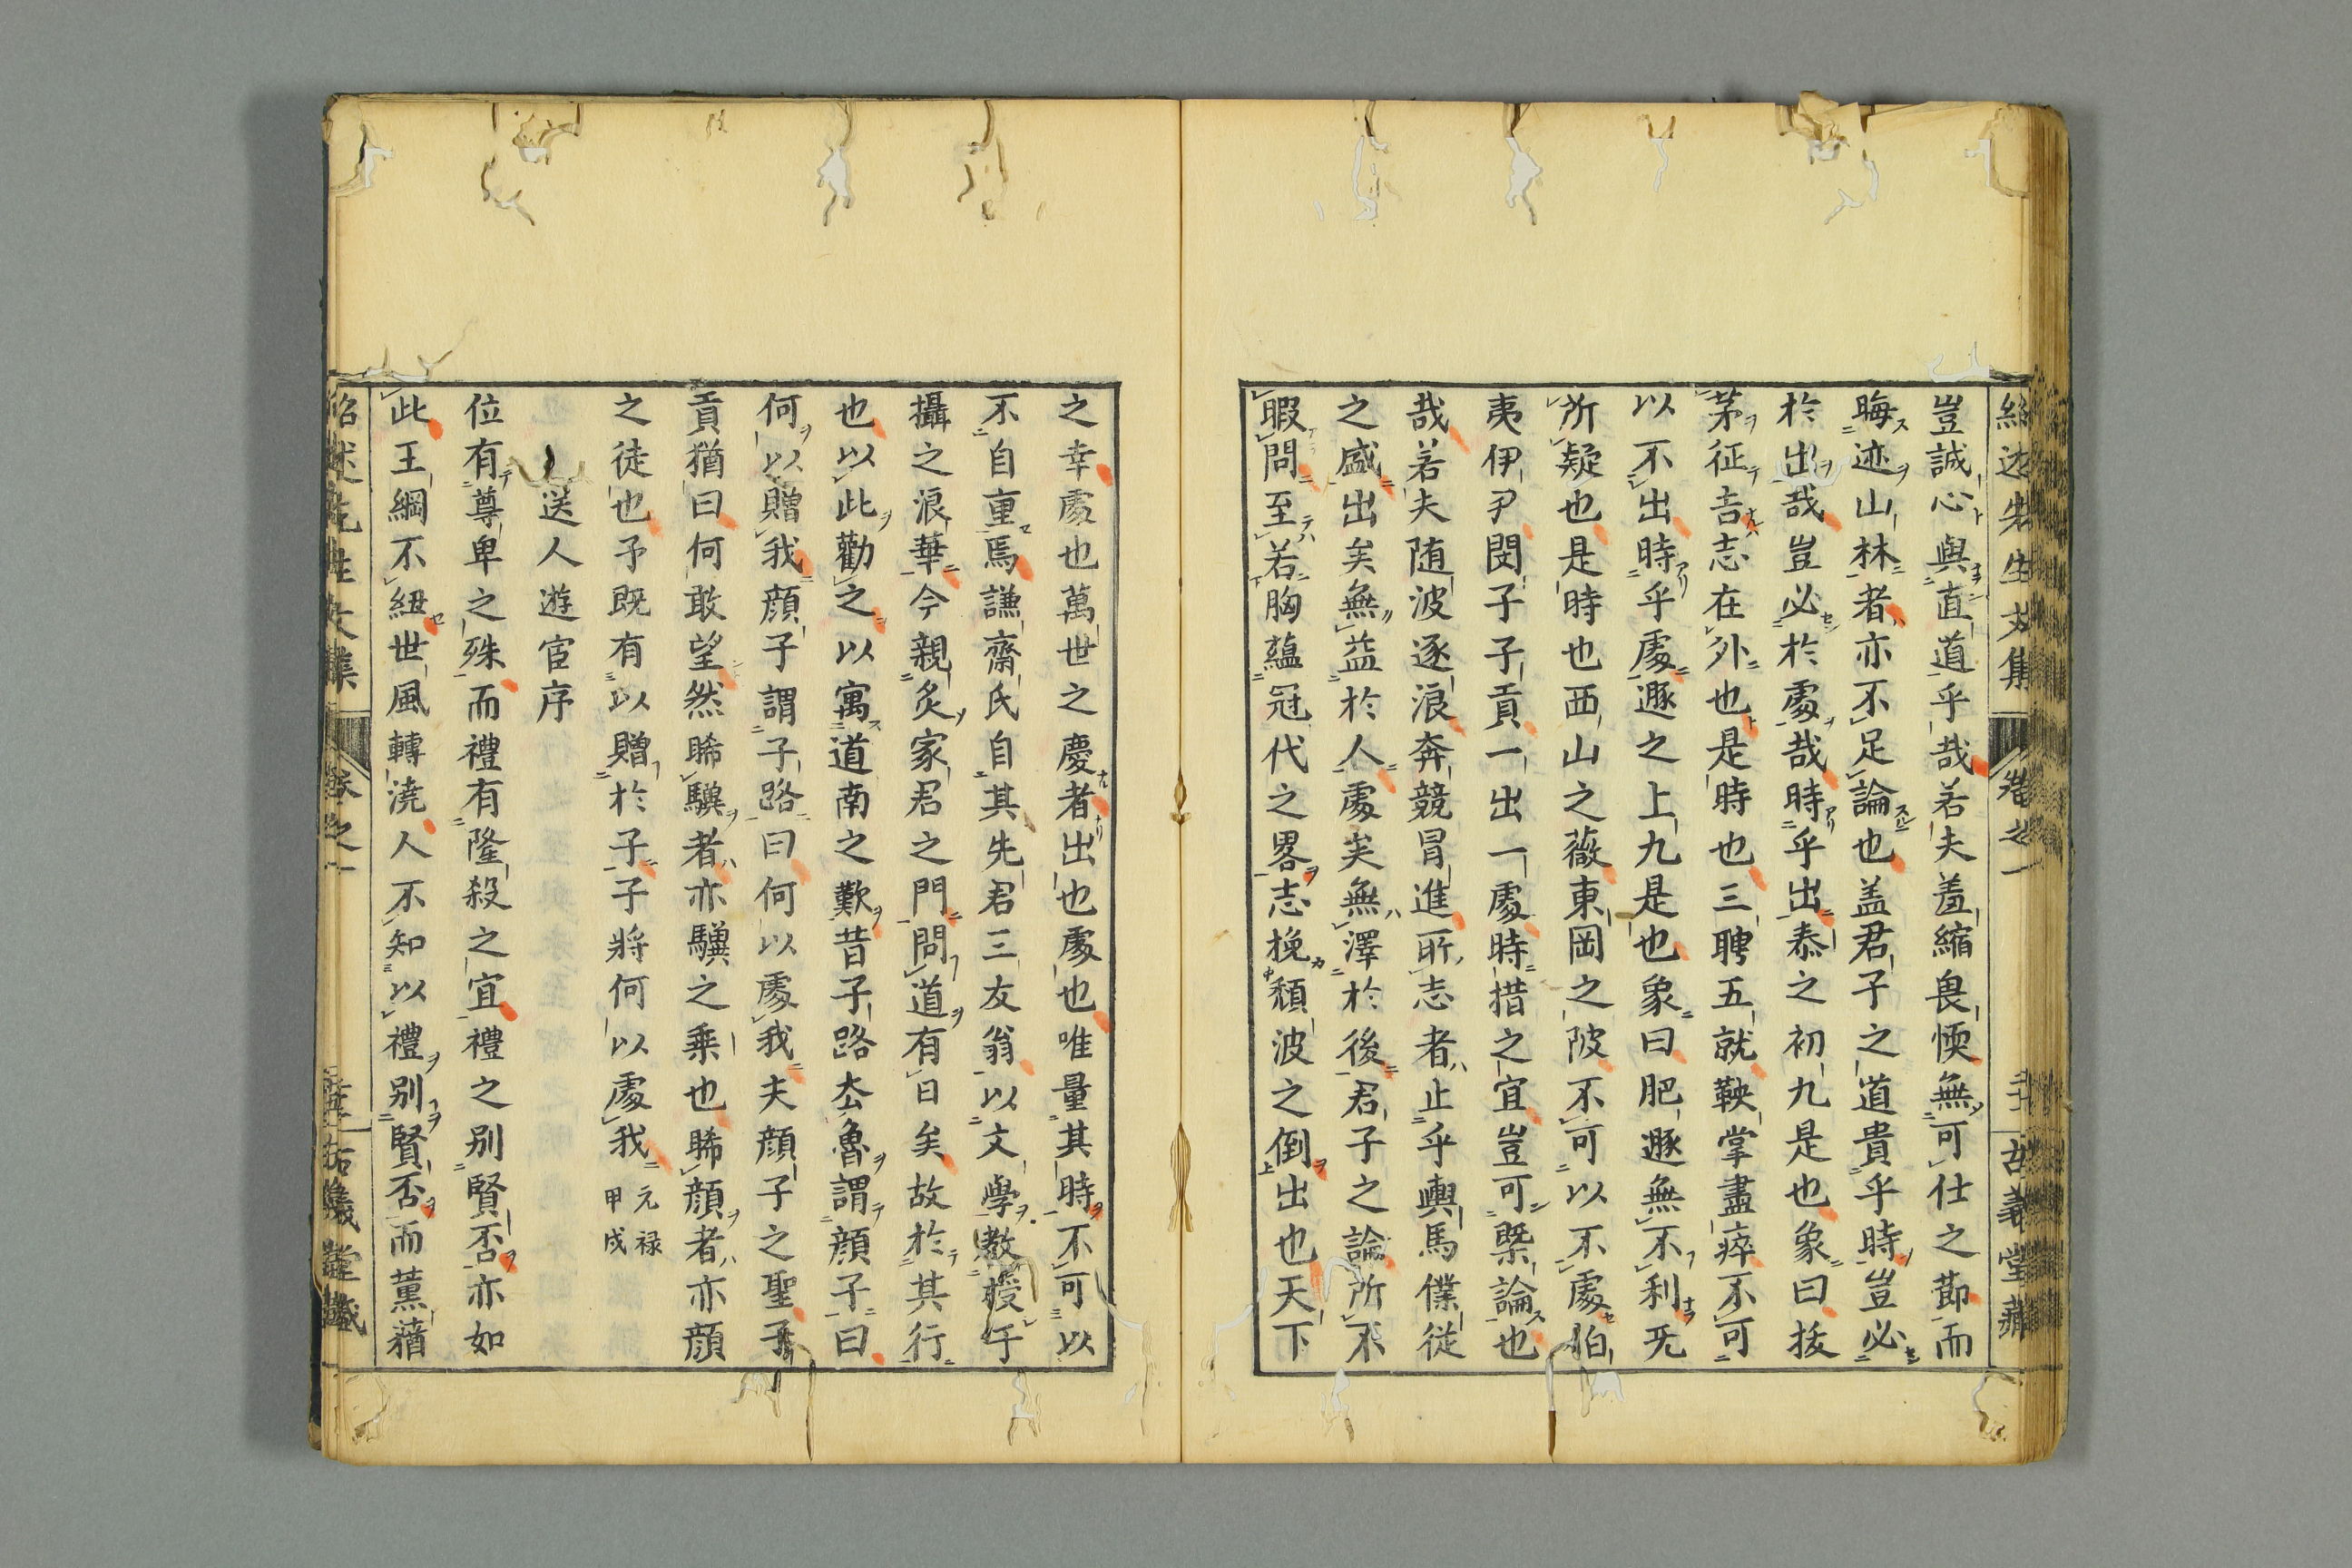 紹述先生文集 卷之一 古義堂藏
豈誠心與直道乎哉若夫羞縮畏愞無可仕之節而
晦迹山林者亦不足論也盖君子之道貴乎時豈必
於出哉豈必於處哉時乎出泰之初九是也象曰拔
茅征吉志在外也是時也三聘五就鞅掌盡瘁不可
以不出時乎處遯之上九是也象曰肥遯無不利无
所疑也是時也西山之薇東岡之陂不可以不處伯
夷伊尹閔子子貢一出一處時措之宜豈可槩論也
哉若夫随波逐浪奔競冒進所志者止乎輿馬僕從
之盛出矣無益於人處矣無澤於後君子之論所不
暇問至若胸蘊冠代之畧志挽頽波之倒出也天下
之幸處也萬世之慶者出也處也唯量其時不可以
不自重焉謙齋氏自其先君三友翁以文學教授于
攝之浪華今親炙家君之門問道有日矣故於其行
也以此勸之以寓道南之歎昔子路去魯謂顔子曰
何以贈我顔子謂子路曰何以處我夫顔子之聖子
貢猶曰何敢望然睎驥者亦驥之乘也睎顔者亦顔
之徒也予既有以贈於子子將何以處我 元禄甲戌
送人遊宦序
位有尊卑之殊而禮有隆殺之宜禮之别賢否亦如
此王綱不紐世風轉澆人不知以禮别賢否而薰蕕
紹述先生文集 卷之一 古義堂藏